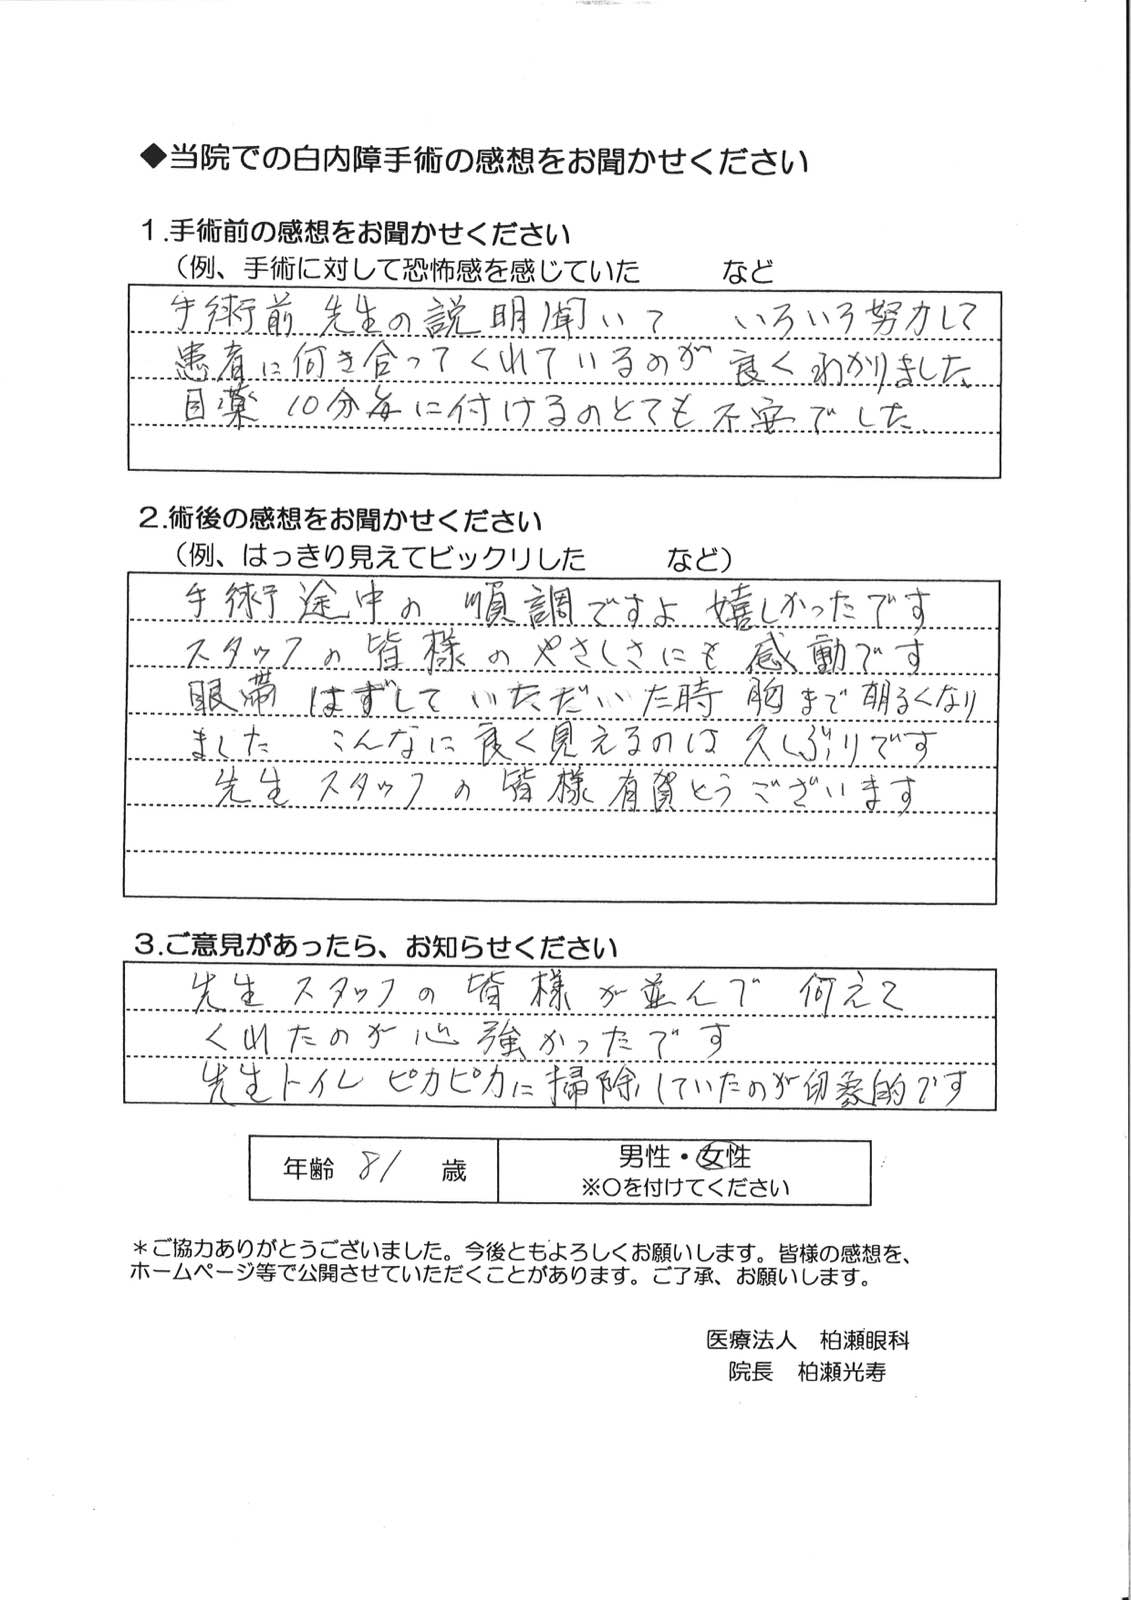 ◆当院での白内障手術の感想をお聞かせください
1.手術前の感想をお聞かせください
（例、手術に対して恐怖感を感じていた　　　など
手術前 先生の説明聞いて　いろいろ努力して
患者に向き合ってくれているのが 良くわかりました、
目薬 10分毎に付けるのとても不安でした、
2.術後の感想をお聞かせください
（例、はっきり見えてビックリした　　　など）
手術途中の 順調ですよ 嬉しかったです
スタッフの皆様のやさしさにも感動です
眼帯はずしていただいた時 胸まで明るくなり
ました　こんなに良く見えるのは久しぶりです
先生 スタッフの皆様有賀とうございます
3.ご意見があったら、お知らせください
先生 スタッフの皆様が並んで 伺えて
くれたのが心強かったです
先生トイレ ピカピカに掃除していたのが印象的です
年齢 81 歳
男性・女性
※○を付けてください
＊ご協力ありがとうございました。今後ともよろしくお願いします。皆様の感想を、
ホームページ等で公開させていただくことがあります。ご了承、お願いします。
医療法人　柏瀬眼科
院長　柏瀬光寿